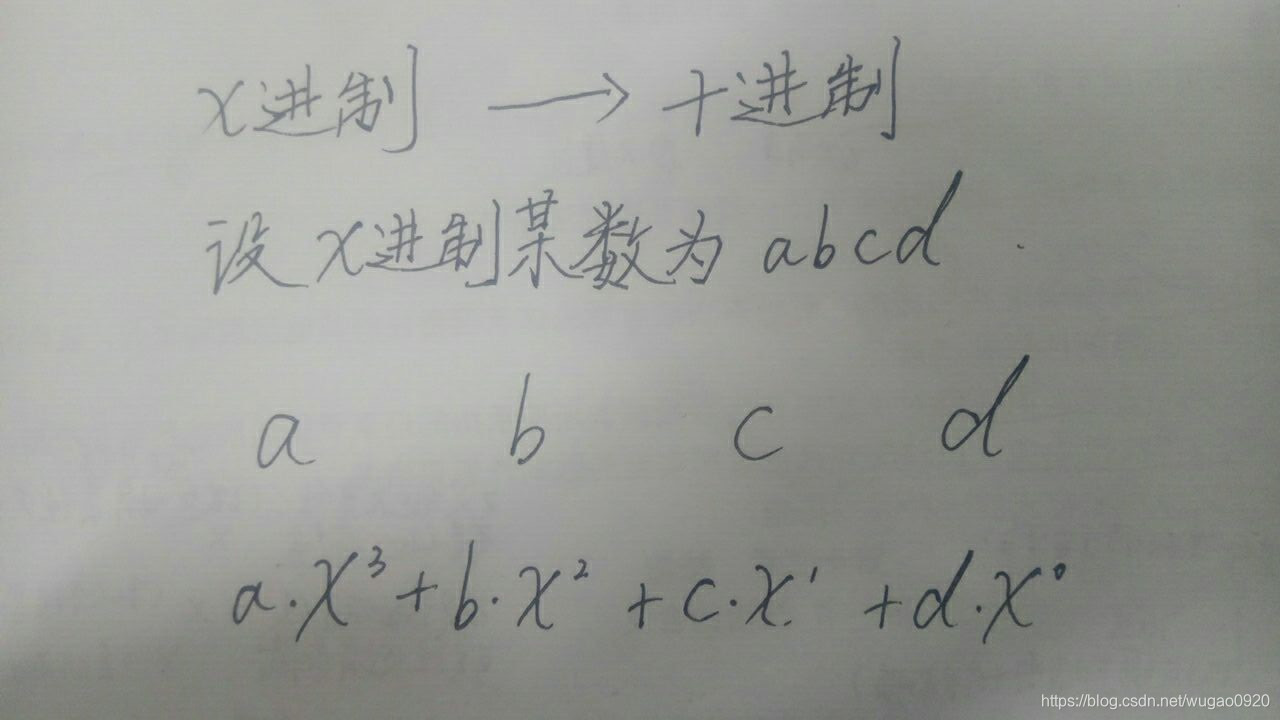 x进制 → 十进制
设 x进制某数为 abcd .
a b c d
a·x³+b·x² +c·x¹ +d·x⁰
https://blog.csdn.net/wugao0920